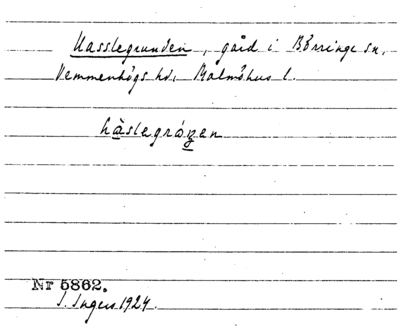 Hasslegrunden, gård i Börringe sn,
Vemmenhögs hd, Malmöhus l.
hàslegrónen
Nr 5862.
I. Ingers 1924.